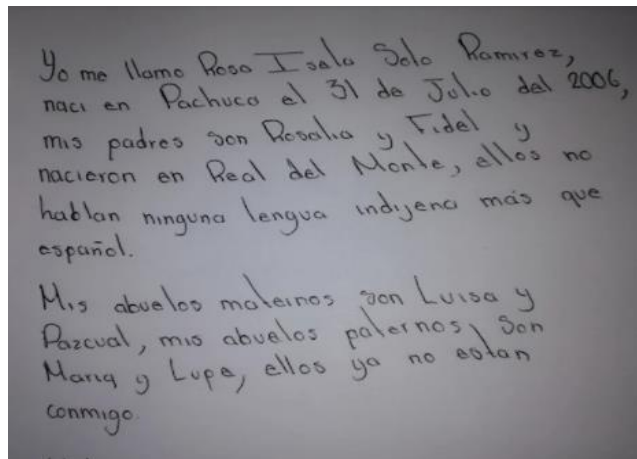 Yo me llamo Rosa Isela Soto Ramirez,
naci en Pachuca el 31 de Julio del 2006,
mis padres son Rosalia y Fidel y
nacieron en Real del Monte, ellos no
hablan ninguna lengua indijena más que
español.
Mis abuelos maternos son Luisa y
Pazcual, mis abuelos paternos son
Maria y Lupe, ellos ya no estan
conmigo.